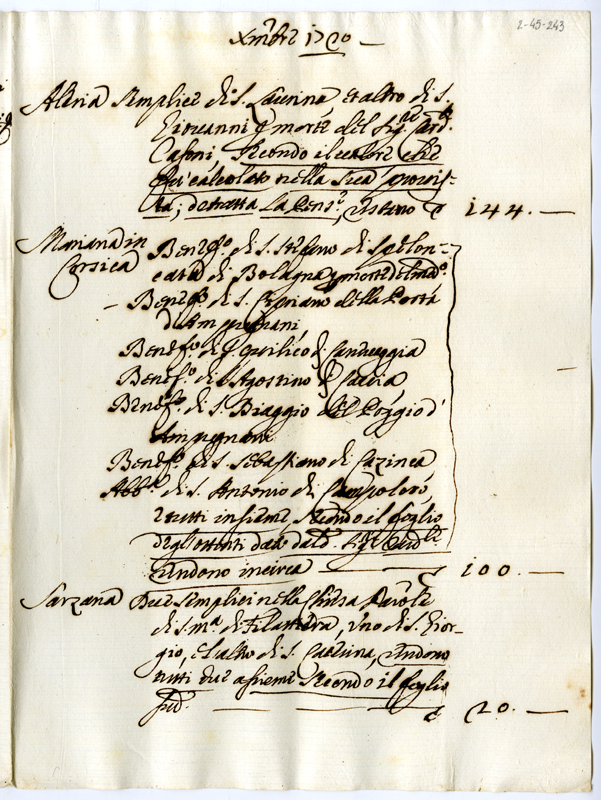 2-45-243
Xmbre 1720
Aleria Semplice di S. Saverina, et altro di S.
Giovanni p morte del Sigr Card.
Casoni, secondo il calore che
fu calcolato nella sua provis-
ta; detratta la Pens.e, restano 144.
Mariana in Benefo. di S. Stefano di Spelon-
Corsica cata di Bologna p morte del mdo.
Benefo. di S. Cipriano della Porta
d'Ampugnani
Benefo. di S. Quilico di
Benefo. di S. Agostino di Casia
Benefo. di S. Biaggio del Poggio d'
Ampugnani
Benefo. di S. Sebastiano di Cazinca
Abba. di S. Antonio di Campoloro,
e tutti insieme, secondo il foglio
degl'ottenti dato dal d. Sigr Cardle
rendono incirca 100.
Sarzana Due semplici nella Chiesa Parochle
di S. Ma. di Filattera, uno di S. Gior-
gio, e l'altro di S. Caterina, rendono
tutti due assieme secondo il foglio
sud. 20.